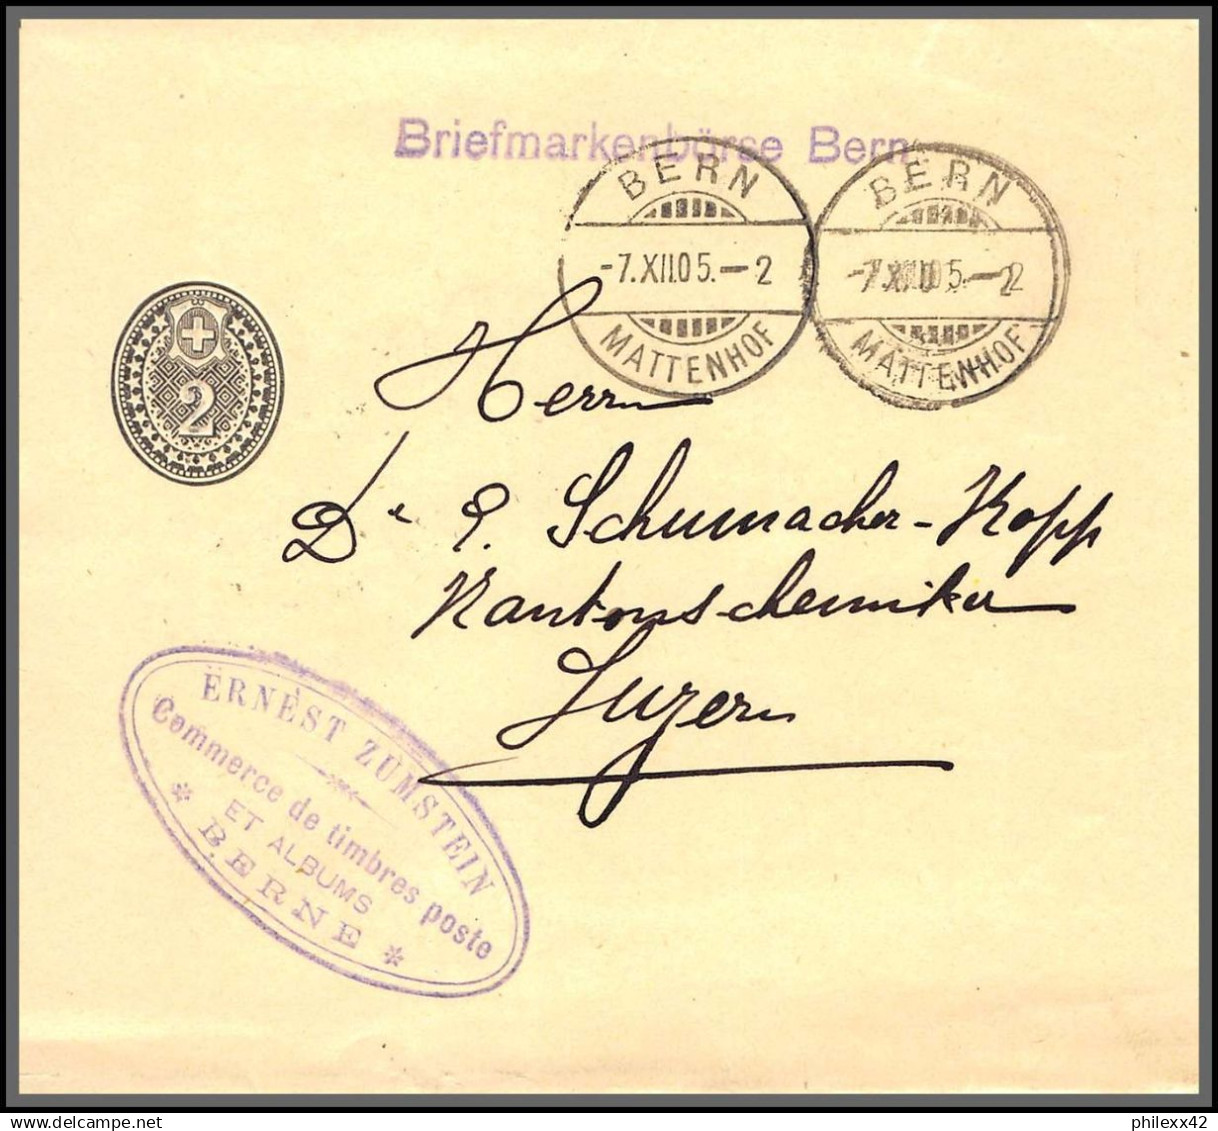 Briefmarkenbörse Bern
BERN
-7.XII.05.—2
MATTENHOF
BERN
-7.XII.05.—2
MATTENHOF
2
Herrn
Dr E. Schumacher-Kopp
Kantonschemiker
Luzern
ERNEST ZUMSTEIN
Commerce de timbres poste
ET ALBUMS
* BERNE *
philexx42